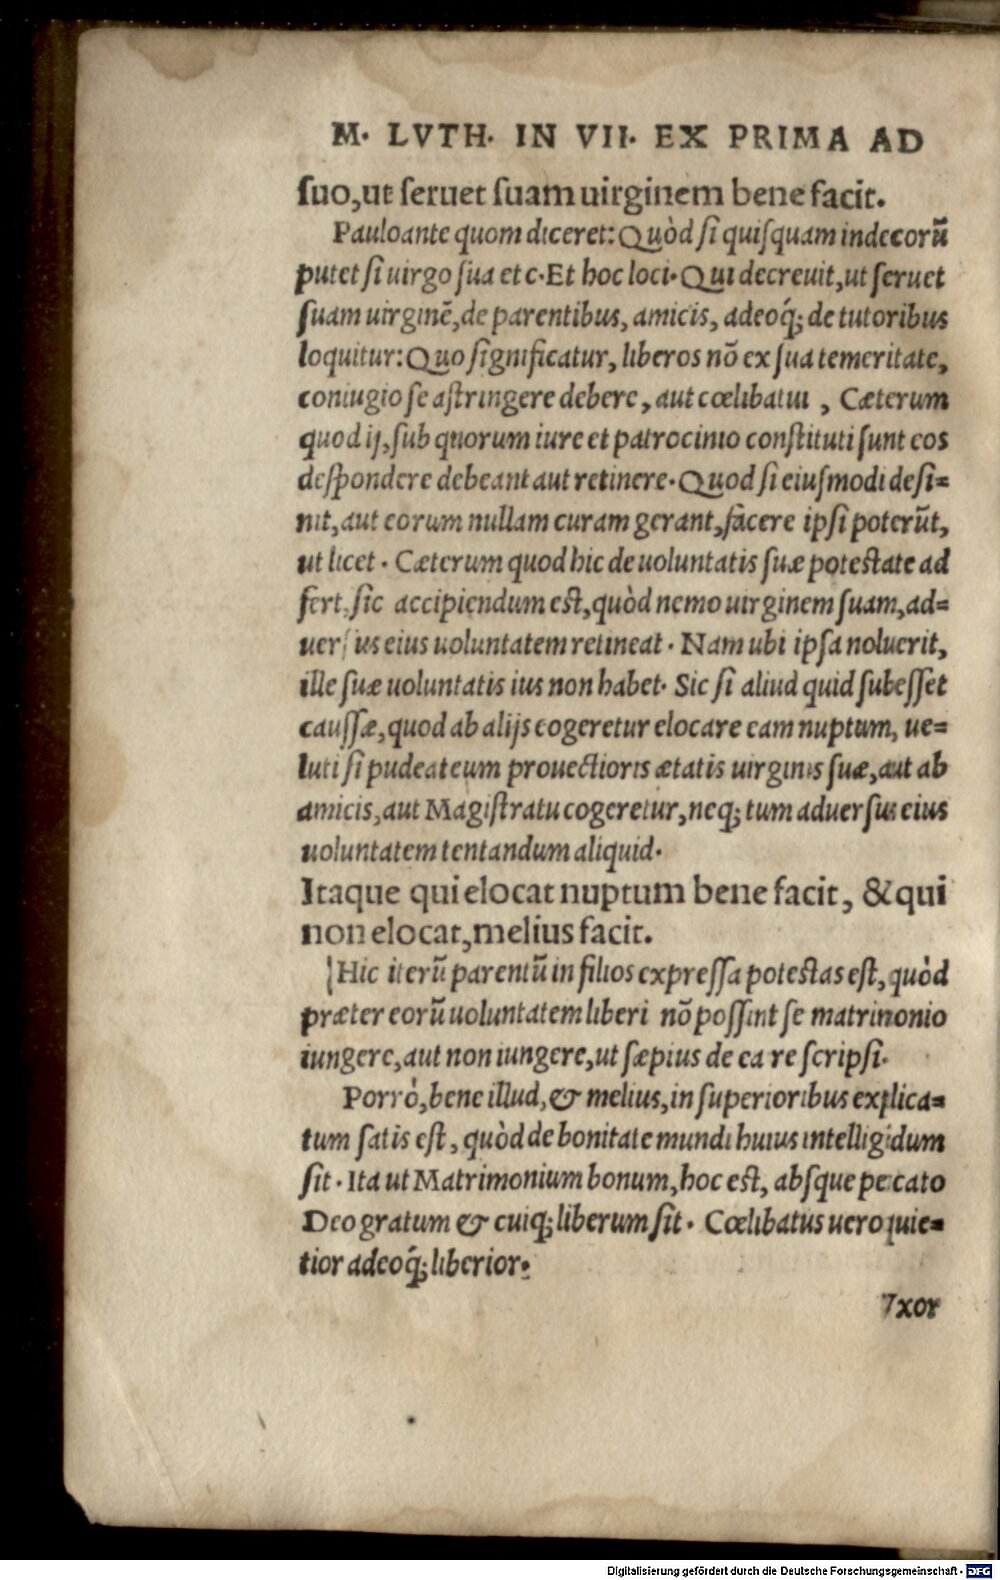 M. LVTH. IN VII. EX PRIMA AD
suo,ut seruet suam uirginem bene facit.
Paulo ante quom diceret: Quòd si quisquam indecorū
putet si uirgo sua et c. Et hoc loci. Qui decreuit, ut seruet
suam uirginē, de parentibus, amicis, adeoq́; de tutoribus
loquitur: Quo significatur, liberos nō ex sua temeritate,
coniugio se astringere debere, aut cœlibatui, Cæterum
quod ij, sub quorum iure et patrocinio constituti sunt eos
despondere debeant aut retinere. Quod si eiusmodi desi=
nit, aut eorum nullam curam gerant, facere ipsi poterūt,
ut licet. Cæterum quod hic de uoluntatis suæ potestate ad
fert, sic accipiendum est, quòd nemo uirginem suam, ad=
uersus eius uoluntatem retineat. Nam ubi ipsa noluerit,
ille suæ uoluntatis ius non habet. Sic si aliud quid subesset
caussæ, quod ab alijs cogeretur elocare eam nuptum, ue=
luti si pudeat eum prouectioris ætatis uirginis suæ, aut ab
amicis, aut Magistratu cogeretur, neq; tum aduersus eius
uoluntatem tentandum aliquid.
Itaque qui elocat nuptum bene facit, & qui
non elocat, melius facit.
Hic iterū parentū in filios expressa potestas est, quòd
præter eorū uoluntatem liberi nō possint se matrinonio
iungere, aut non iungere, ut sæpius de ea re scripsi.
Porrò, bene illud, & melius, in superioribus explica=
tum satis est, quòd de bonitate mundi huius intelligidum
sit. Ita ut Matrimonium bonum, hoc est, absque peccato
Deo gratum & cuiq; liberum sit. Cœlibatus uero quie=
tior adeoq́; liberior.
Vxor
Digitalisierung gefördert durch die Deutsche Forschungsgemeinschaft - DFG